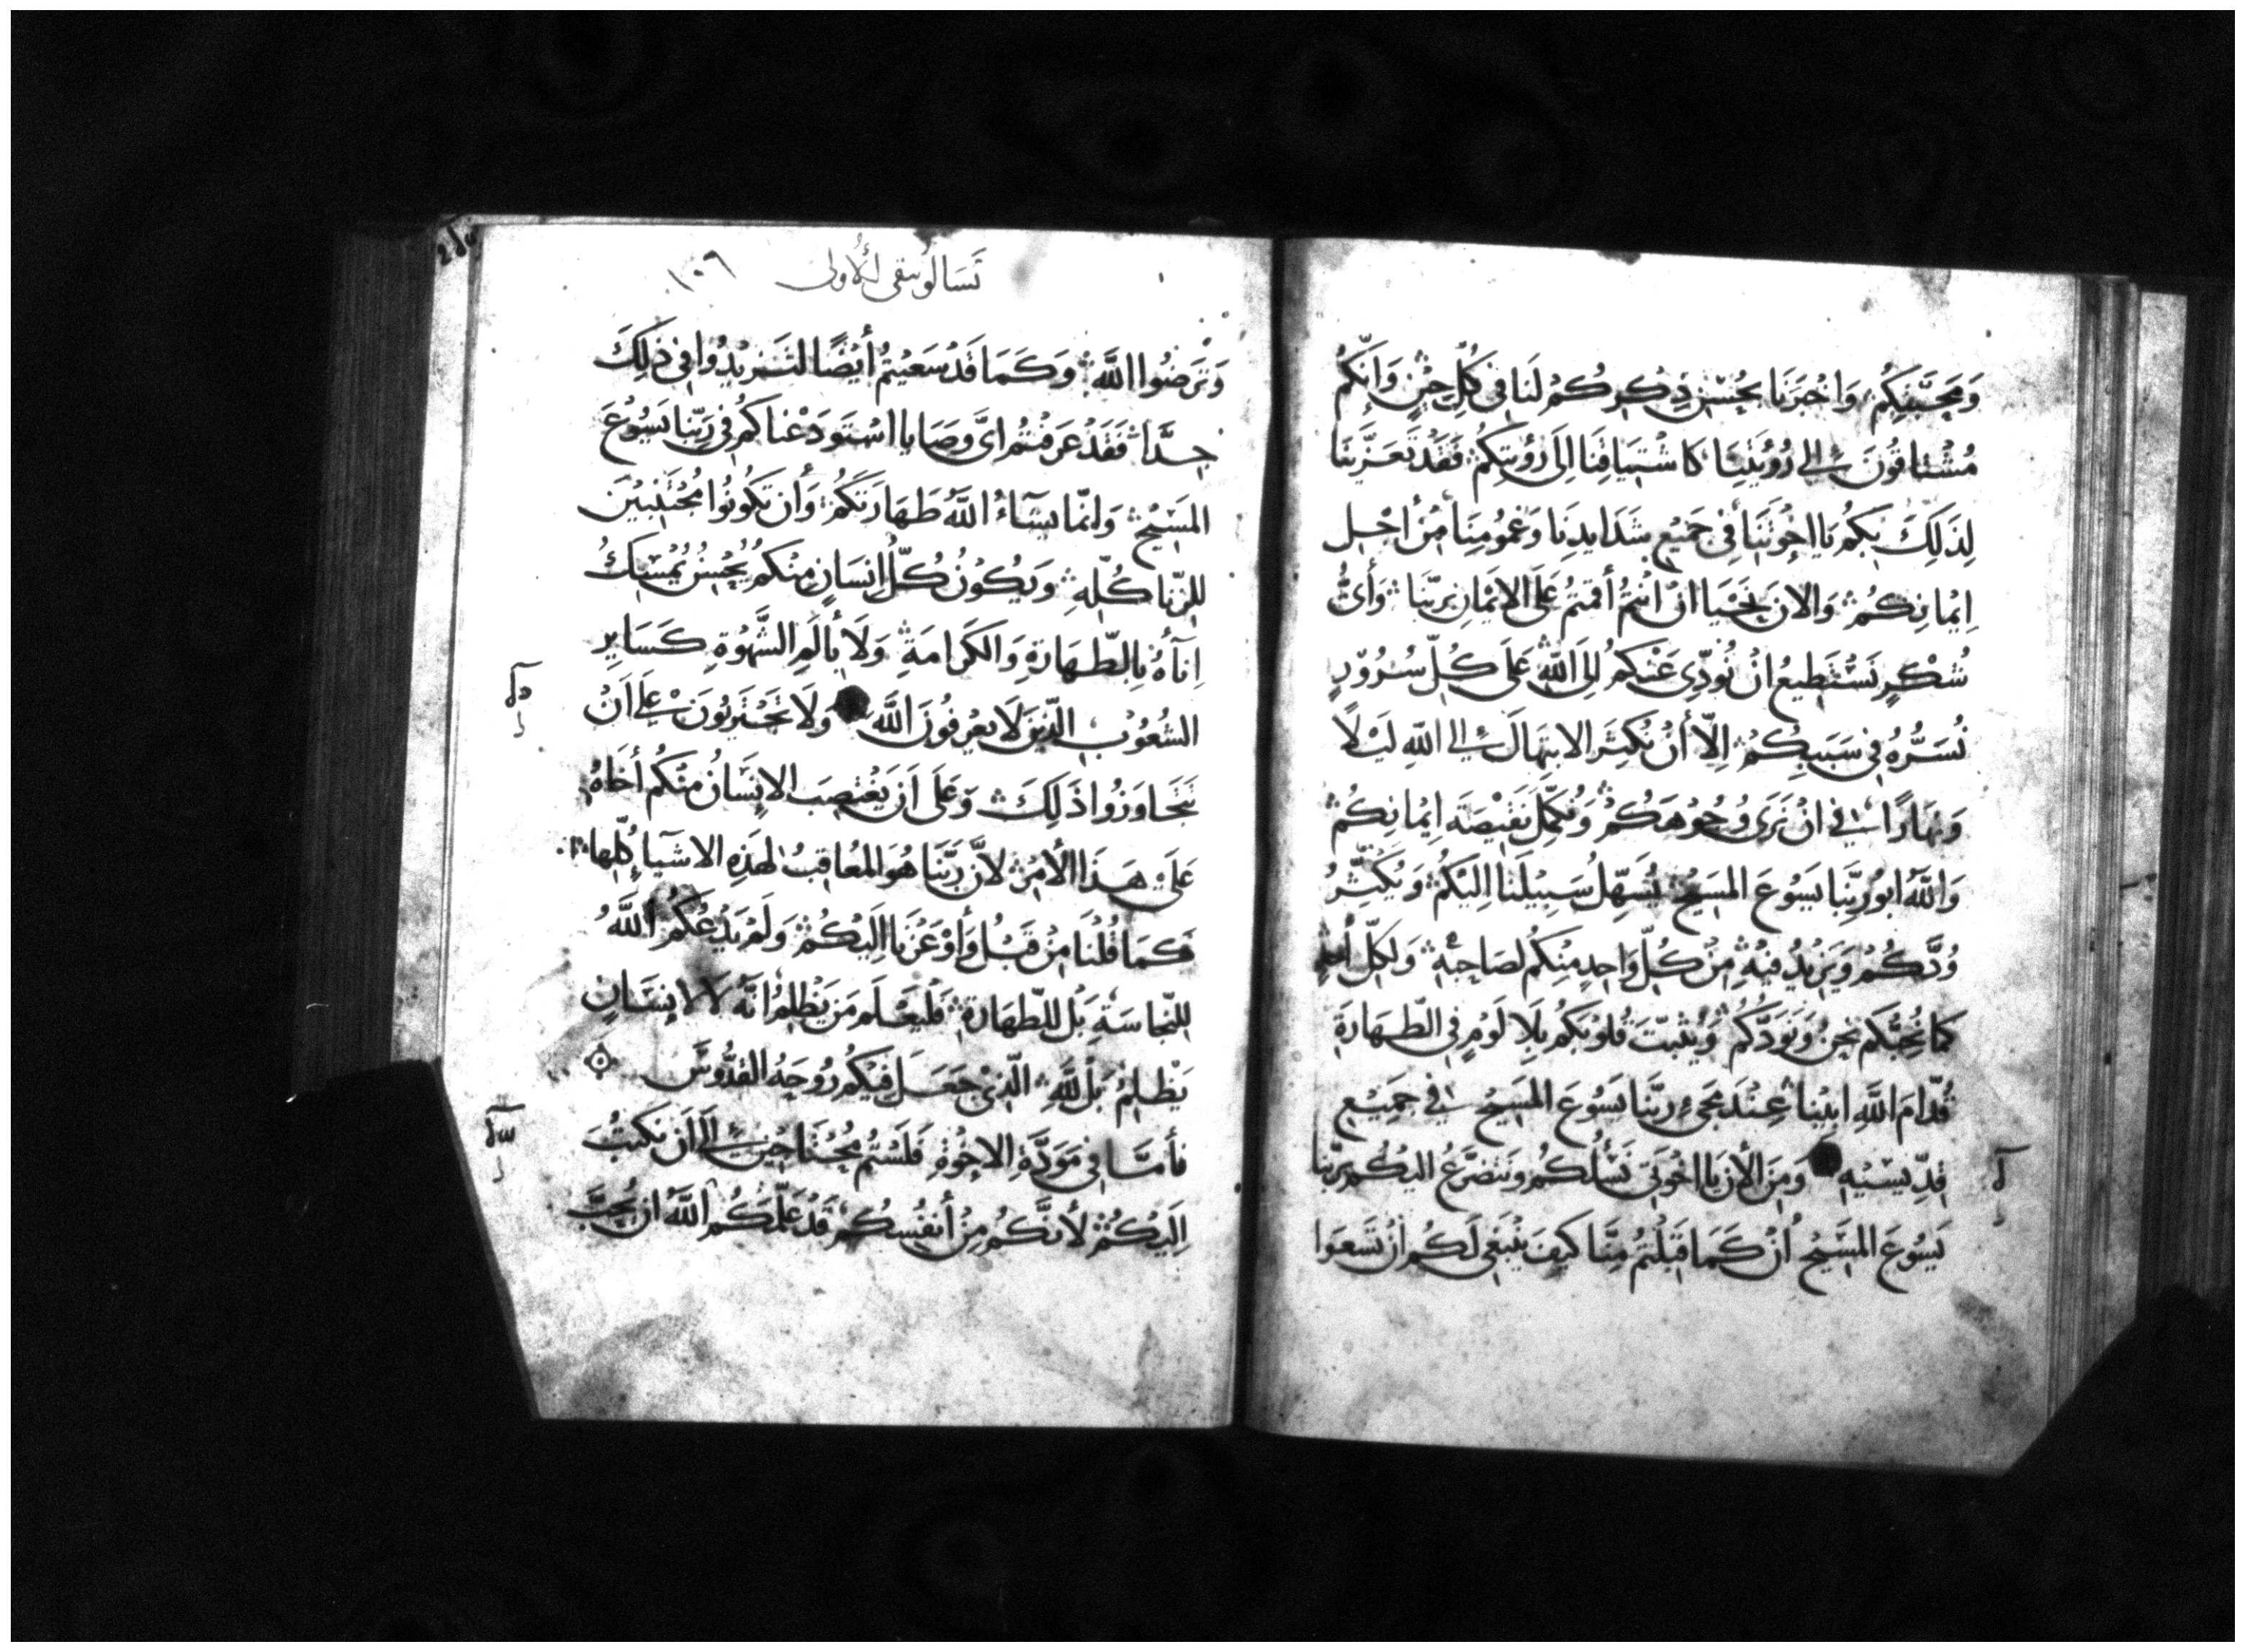 وَمَحَبَّتِكُمْ وَاخْبَرَنَا بحُسْنِ ذِكرِكُمْ لَنَا في كُلِّ حِيْنٍ وَانَّكُمْ
مُشْتاقُونَ إلى رُوْيَتِنَا كَاشْتِيَاقِنَا اِلَى رُؤْيَتِكُمْ فَقَدْ تَعَزَّيْنَا
لِذَلِكَ بِكُمْ يَا اِخْوَتَنَا فِي جَمِيْعِ شَدَايدِنَا وَغمُومِنَا مِنْ اجْلِ
اِيْمانِكُمْ وَالانَ نَحْيَا انْ انْتُمْ أقمتُمْ عَلَى الاِيْمَانِ برَبِّنَا وَأَيُّ
شُكْرٍ نَسْتَطِيعُ انْ نُودِّي عَنْكمُ اِلَى اللَّهِ عَلَى كُلِّ سُرُوْرٍ
نُسَرُّهُ فِي سَبَبِكُمْ اِلّا أَنْ نُكثِرَ الابتِهَالَ إلى اللهِ لَيْلًا
وَنهَارًا في انْ نَرَى وُجُوْهَكُمْ وَنُكمِّلَ نَقِيْصَةَ اِيْمَانِكُمْ
وَاللَّهُ ابُورَبِّنَا يَسُوْعَ المَسِيْحِ يُسَهِّلُ سَبِيْلَنَا اِلَيْكُمْ وَيُكَثِّرُ
وُدَّكُمْ وَيَزِيْدُ فيْهِ مِنْ كُلِّ وَاحِدٍ مِنكُم لصَاحِبِهِ وَلِكلِّ أحَدٍ
كَمَا نُحِبُّكم نحْنُ وَنَوَدُّكُمْ وَيُثَبِّتَ قُلوْبَكُم بِلَا لَوْمٍ فِي الطّهَارَةِ
قُدّامَ اللَّهِ ابِيْنا عِنْدَ مَجِيءِ رَبِّنَا يَسُوْعَ المَسِيْحِ في جَمِيْعِ
قِدِّيْسِيْهِ وَمِنَ الأنَ يَا اخْوَتِي نَسْأَلُكُمْ وَنَتضَرَّعُ اليْكُم بِرَبِّنا
يَسُوْعَ المَسِيْحِ اُنْ كَمَا قَبِلْتُمْ مِنَّا كَيفَ يَنْبَغِي لَكُم انْ تَسْعَوا
تَسَالُونِيقى الأولى ١٠٩
وَتَرْضُوا اللَّهَ وَكَمَا قَدْ سَعَيْتُمُ أَيْضًا لتَزيْدُوا فِي ذلِكَ
جِدًّا فَقَدْ عَرَفْتُم ايَّ وَصَايَا اسْتَوْدَعْناكُمْ فِي رَبِّنا يَسُوْعَ
المَسِيْحِ وَانمّا يشَآءُ اللَّهُ طَهَارَتَكُمْ وَأَن تَكُونُوا مُجْتَنِبيْنَ
للزِّنا كُلِّهِ وَيكُوْنُ كُلُّ اِنسَانٍ مِنْكُمْ يُحْسِنُ يُمْسِكُ
اِنآءهُ بِالطّهَارَةِ وَالكَرَامَةِ وَلَا بِأَلَمِ الشَّهْوَةِ كَسَايِرِ
الشعُوْبِ الّذِينَ لَا يعْرِفُونَ اللَّهَ وَلَا تَجْتَرِيُونَ عَلَى اَنْ
تتَجَاوَزُوا ذَلِكَ وَعَلَى اَن يَغْتصِبَ الاِنسَانُ مِنْكُم أخَاهُ
عَلَىْ هَذَا الأمْرِ لأنَّ رَبَّنَا هُوَ المُعَاقِبُ لهَذِهِ الاشْيَاءِ كُلِّهَا
كَمَا قُلْنَا مِنْ قَبْلُ وَأَوْعَزْنَا اِلَيْكُمْ وَلَمْ يَدْعُكمُ اللَّهُ
للنّجَاسَةِ بَلْ للطّهَارَةِ فَليَعْلَم مَن يَظْلِمُ انَّهُ لَا لاِنسَانٍ
يَظْلِمُ بَلْ للَّهِ الَّذِيْ جَعَلَ فِيْكُم رُوْحَهُ القدُّوْسَ
فأَمَّا فِي مَوَدَّةِ الاخْوَةِ فَلَسْتُم مُحْتَاجِيْنَ إلى اَن نَكتُبَ
اِلَيْكُمْ لأنَّكُم مِنْ أَنْفُسِكُمْ قَدْ عَلَّمَكُم اللَّهُ انْ يُحِبَّ